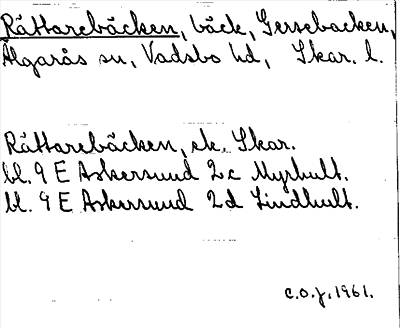 Råttarebäcken, bäck, Gersebacken,
Älgarås sn, Vadsbo hd, Skar. l.
Råttarebäcken, ek. Skar.
bl. 9 E Askersund 2c Myrhult.
bl. 9 E Askersund 2d Lindhult.
C.O.J. 1961.